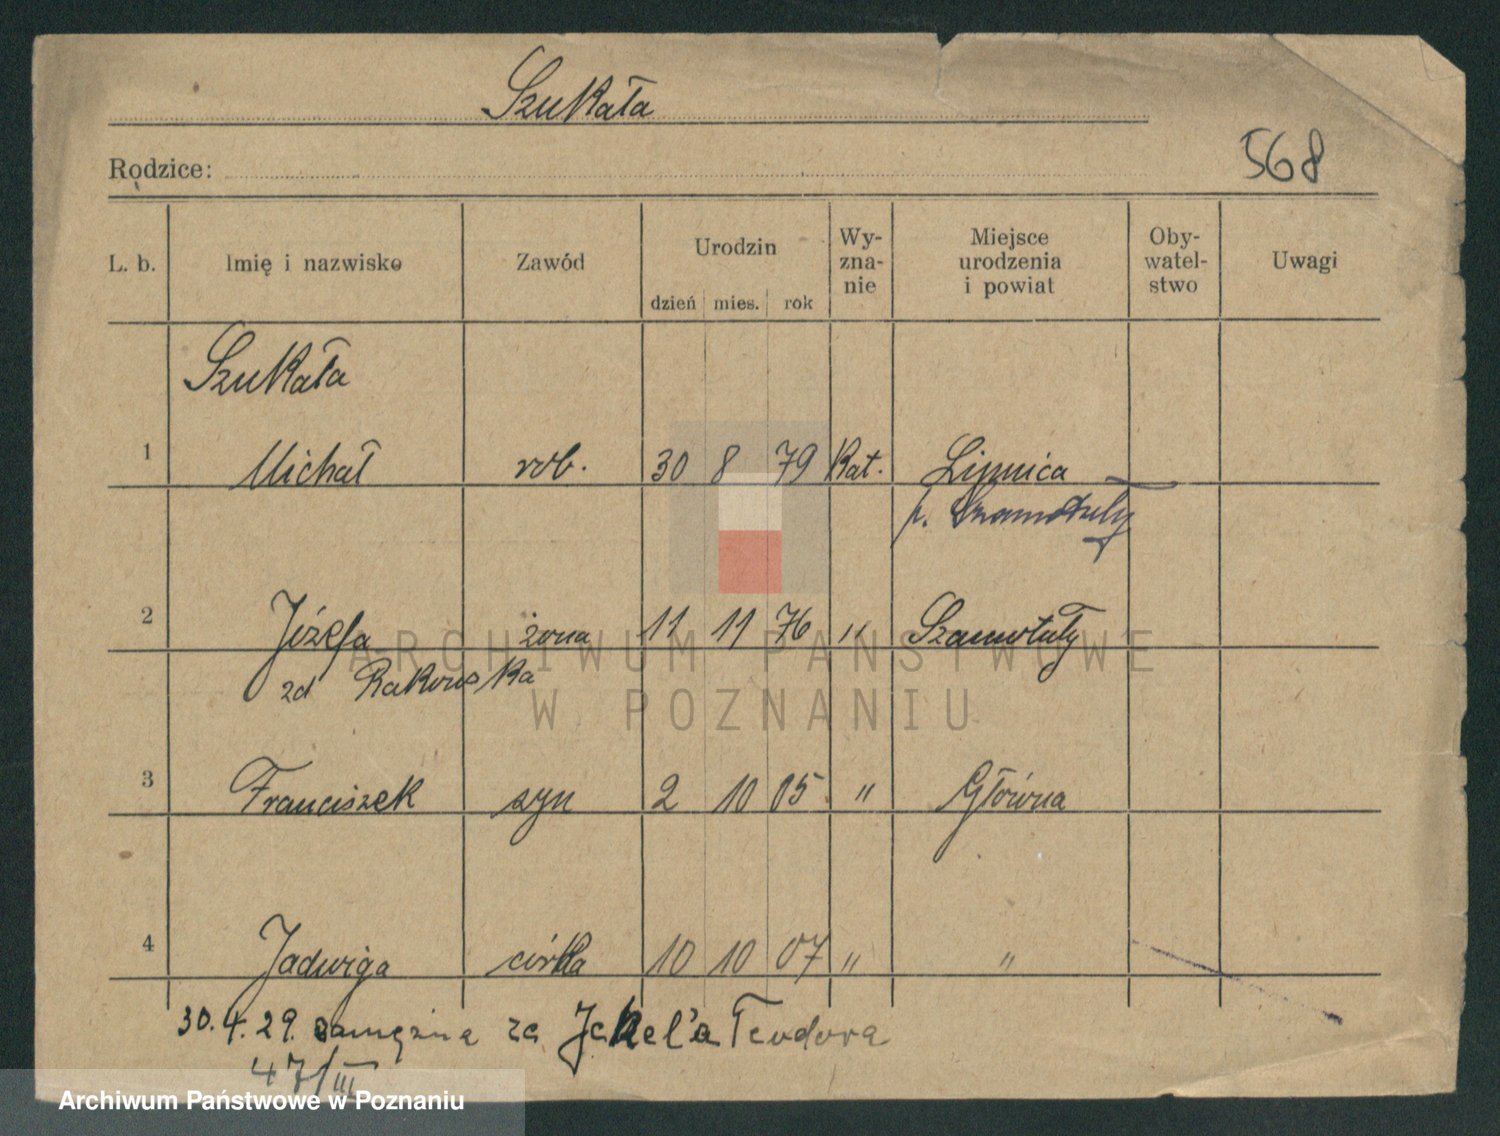 Szukała
Rodzice:
568
L. b. Imię i nazwisko Zawód Urodzin dzień mies. rok Wy-zna-nie Miejsce urodzenia i powiat Oby-watel-stwo Uwagi
Szukała
1 Michał rob. 30 8 79 Kat. Lipnica
p. Szamotuły
2 Józefa żona 11 11 76 " Szamotuły
zd Rakowska
3 Franciszek syn 2 10 05 " Główna
4 Jadwiga córka 10 10 07 " "
30.4.29. zamężna za Jekel'a Teodora
47/III
ARCHIWUM PAŃSTWOWE
W POZNANIU
Archiwum Państwowe w Poznaniu